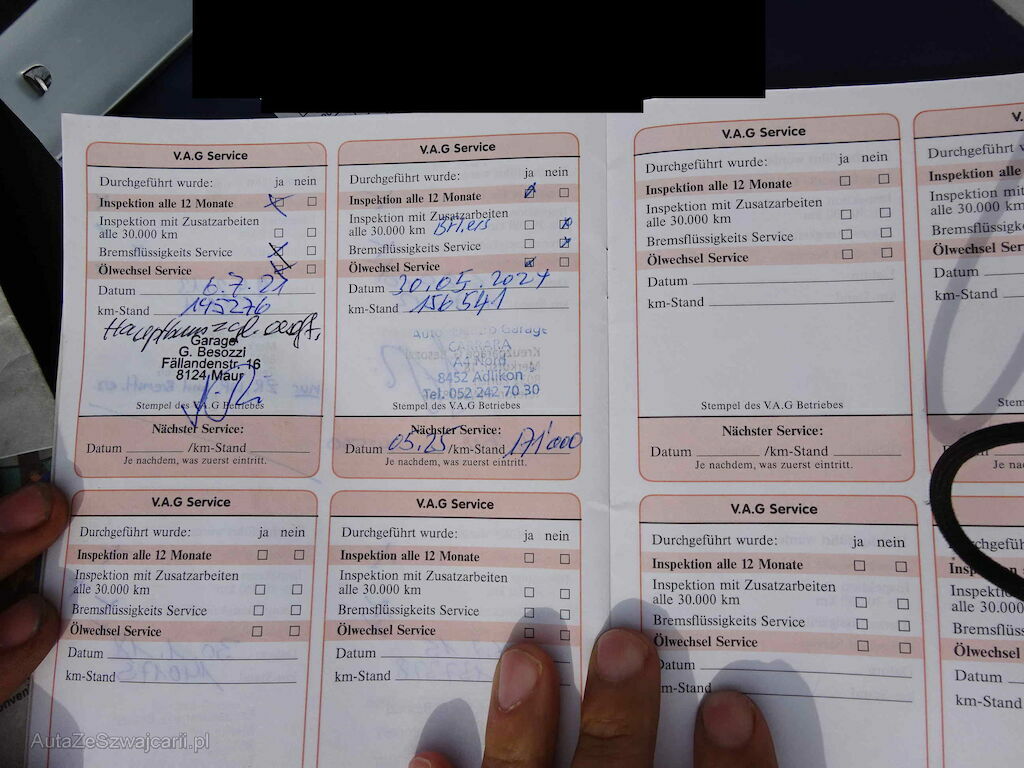 V.A.G Service
Durchgeführt wurde: ja nein
Inspektion alle 12 Monate
Inspektion mit Zusatzarbeiten
alle 30.000 km
Bremsflüssigkeits Service
Ölwechsel Service
Datum 6.7.21
km-Stand 145276
Garage
G. Besozzi
Fällandenstr. 16
8124 Maur
Stempel des V.A.G Betriebes
Nächster Service:
Datum /km-Stand
Je nachdem, was zuerst eintritt.
V.A.G Service
Durchgeführt wurde: ja nein
Inspektion alle 12 Monate
Inspektion mit Zusatzarbeiten
alle 30.000 km
Bremsflüssigkeits Service
Ölwechsel Service
Datum 30.05.2024
km-Stand 156541
Garage
CARRARA
A4 Nord
8452 Adlikon
Tel. 052 242 70 30
Stempel des V.A.G Betriebes
Nächster Service:
Datum 05.25 /km-Stand 171'000
Je nachdem, was zuerst eintritt.
V.A.G Service
Durchgeführt wurde: ja nein
Inspektion alle 12 Monate
Inspektion mit Zusatzarbeiten
alle 30.000 km
Bremsflüssigkeits Service
Ölwechsel Service
Datum
km-Stand
Stempel des V.A.G Betriebes
Nächster Service:
Datum /km-Stand
Je nachdem, was zuerst eintritt.
V.
Durchgeführt
Inspektion alle
Inspektion mit
alle 30.000 km
Ölwechsel
Datum
km-Stand
Stempel
Datum
Je na
V.A.G Service
Durchgeführt wurde: ja nein
Inspektion alle 12 Monate
Inspektion mit Zusatzarbeiten
alle 30.000 km
Bremsflüssigkeits Service
Ölwechsel Service
Datum
km-Stand
V.A.G Service
Durchgeführt wurde: ja nein
Inspektion alle 12 Monate
Inspektion mit Zusatzarbeiten
alle 30.000 km
Bremsflüssigkeits Service
Ölwechsel Service
Datum
km-Stand
V.A.G Service
Durchgeführt wurde: ja nein
Inspektion alle 12 Monate
Inspektion mit Zusatzarbeiten
alle 30.000 km
Bremsflüssigkeits Service
Ölwechsel Service
Datum
km-Stand
alle 30.000
Ölwechsel
Datum
km-Stand
AutaZeSzwajcarii.pl